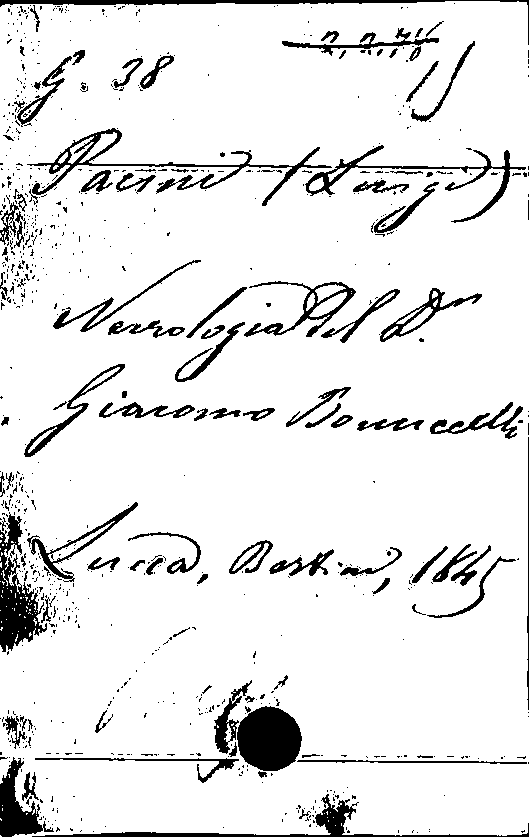 G. 38
Pacini (Luigi)
Necrologia del D.r
Giacomo Bonuccelli
Lucca, Bertini, 1845